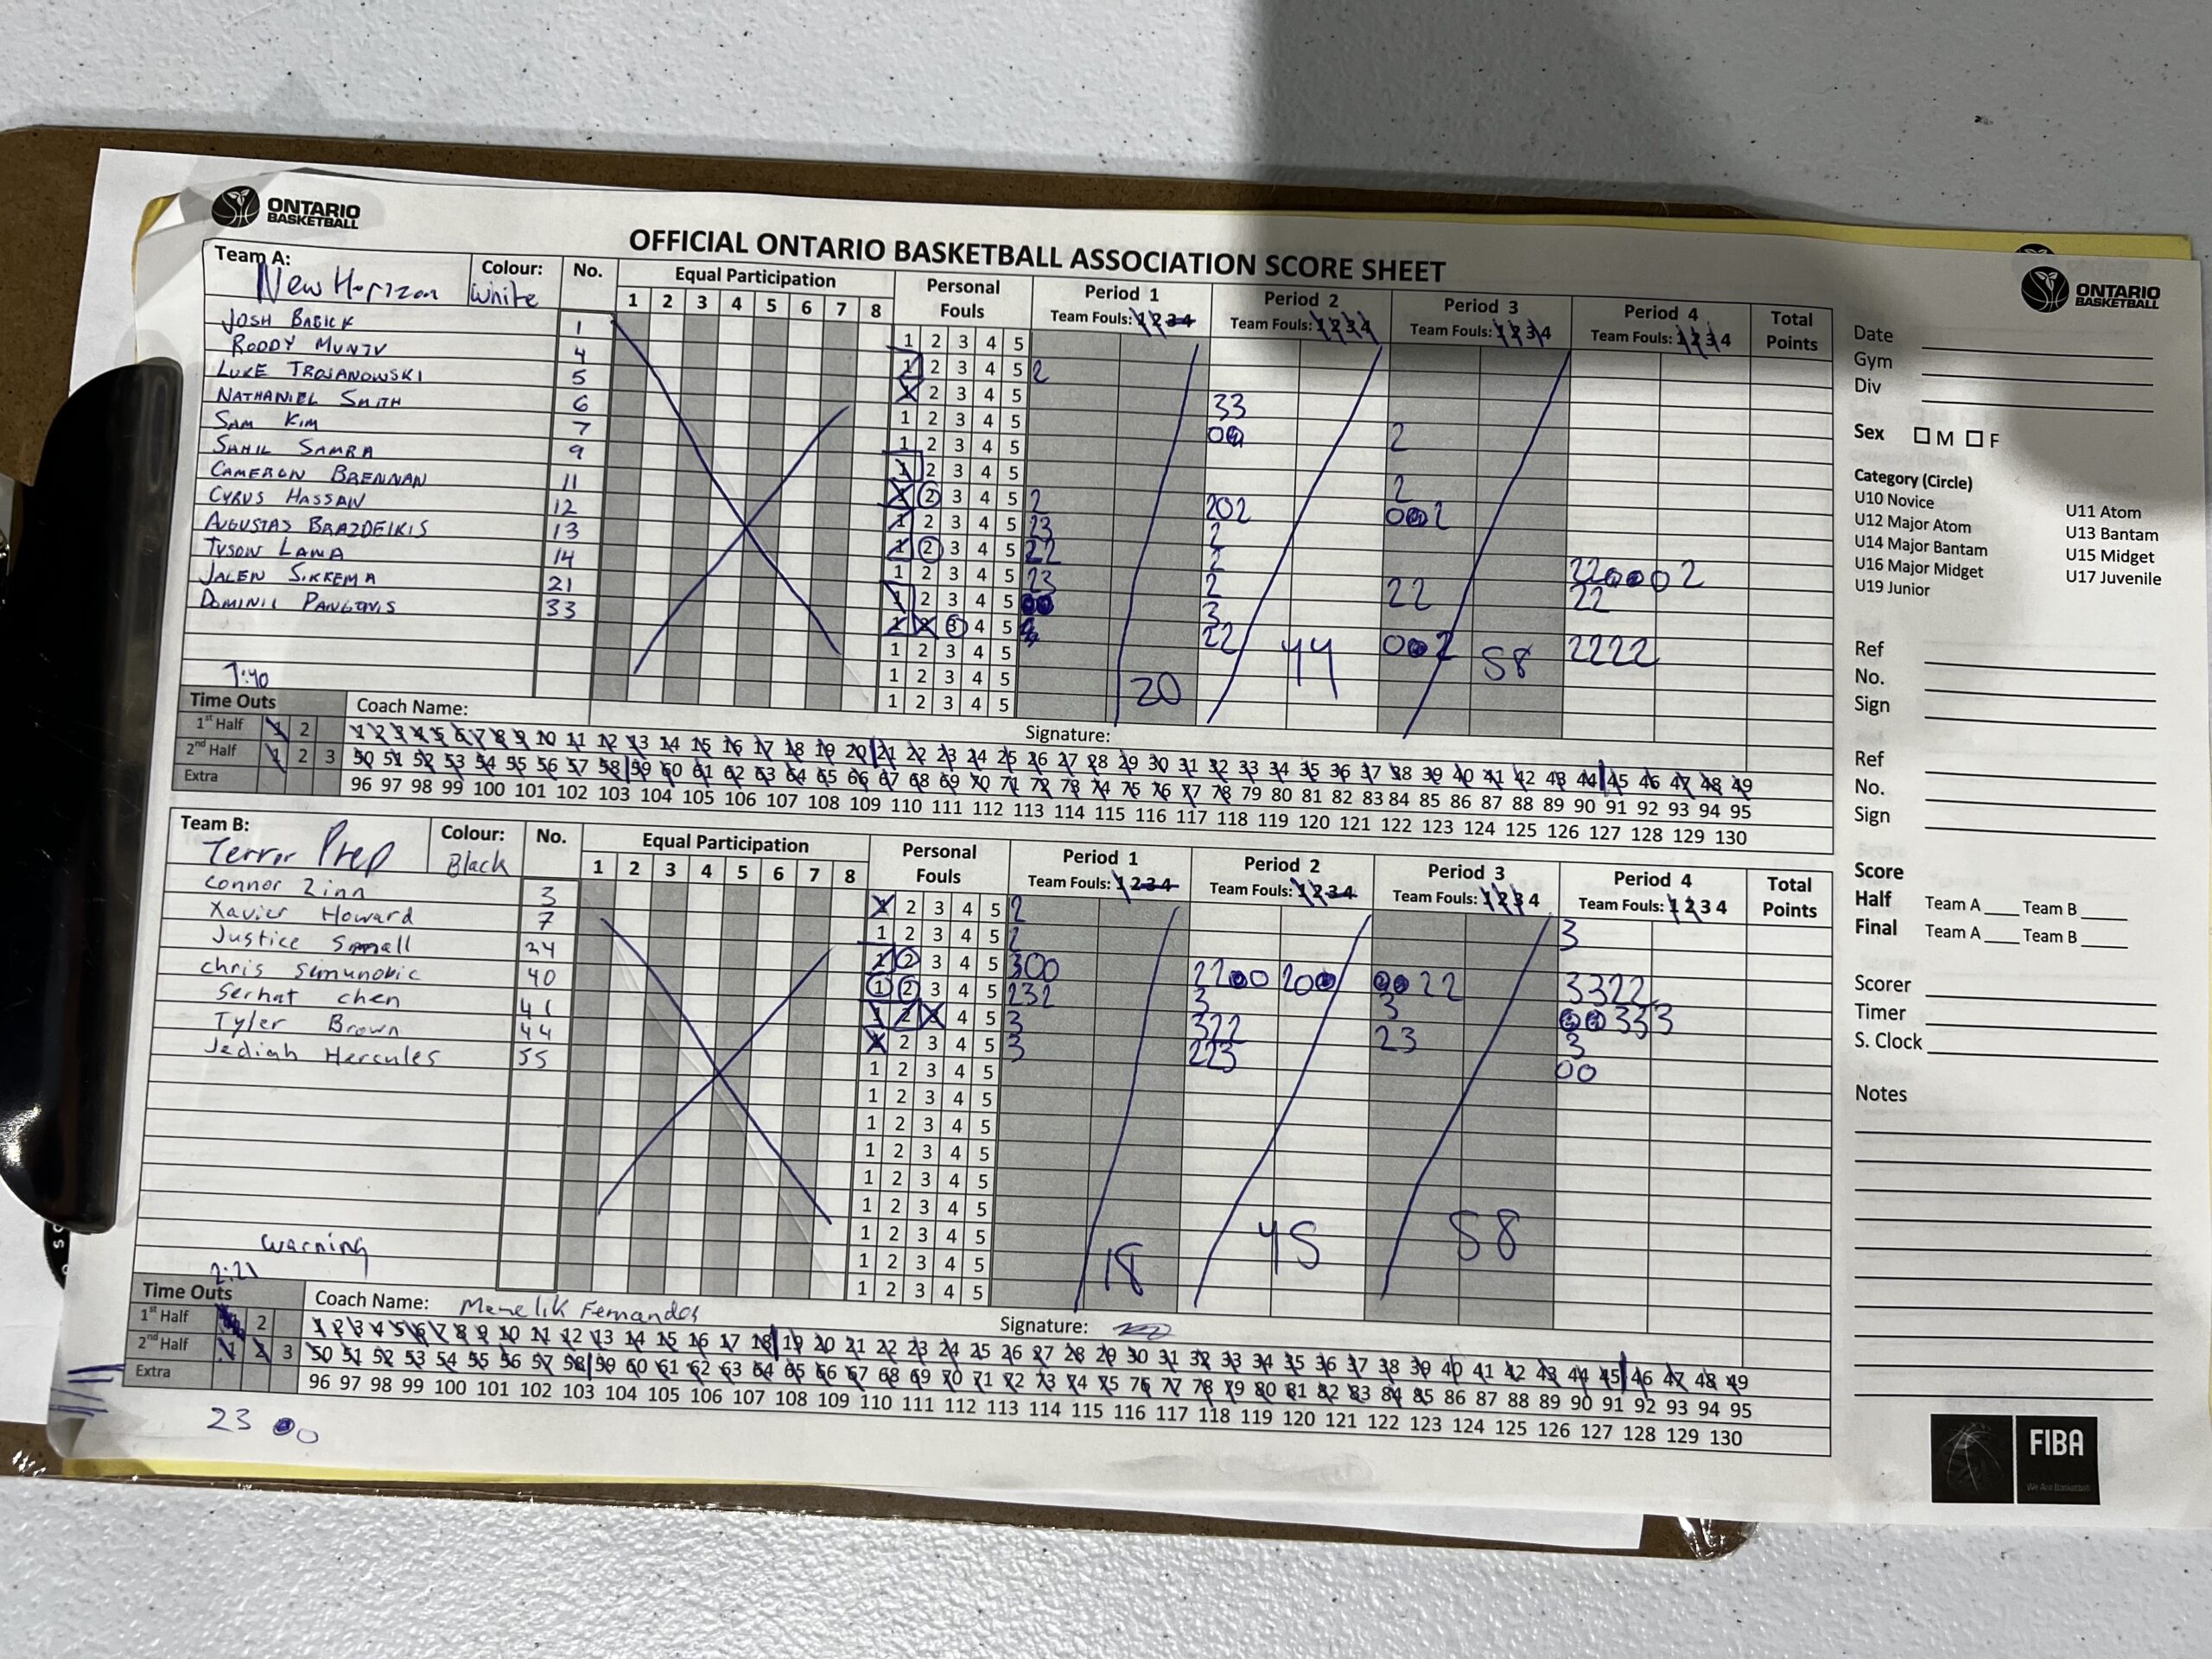 ONTARIO
BASKETBALL
OFFICIAL ONTARIO BASKETBALL ASSOCIATION SCORE SHEET
ONTARIO
BASKETBALL
Team A: New Horizon
Colour: White
No.
Equal Participation
1 2 3 4 5 6 7 8
Personal Fouls
Period 1
Team Fouls: 1 2 3 4
Period 2
Team Fouls: 1 2 3 4
Period 3
Team Fouls: 1 2 3 4
Period 4
Team Fouls: 1 2 3 4
Total Points
JOSH BABICK 1
1 2 3 4 5
ROODY MUNTU 4
1 2 3 4 5 2
LUKE TROJANOWSKI 5
1 2 3 4 5
NATHANIEL SMITH 6
1 2 3 4 5 33
SAM KIM 7
1 2 3 4 5 00 2
SAHIL SAMRA 9
1 2 3 4 5
CAMERON BRENNAN 11
1 2 3 4 5 2 202 2
CYRUS HASSAN 12
1 2 3 4 5 23 2 002
AUGUSTAS BRAZDEIKIS 13
1 2 3 4 5 22 2
TYSON LAMA 14
1 2 3 4 5 23 2 220002
JALEN SIKKEMA 21
1 2 3 4 5 00 3 22 22
33
1 2 3 4 5 22 002 2222
1 2 3 4 5
1 2 3 4 5
1 2 3 4 5
20 44 58
7:40
Time Outs
Coach Name:
Signature:
1st Half 1 2
1 2 3 4 5 6 7 8 9 10 11 12 13 14 15 16 17 18 19 20 21 22 23 24 25 26 27 28 29 30 31 32 33 34 35 36 37 38 39 40 41 42 43 44 45 46 47 48 49
2nd Half 1 2 3
50 51 52 53 54 55 56 57 58 59 60 61 62 63 64 65 66 67 68 69 70 71 72 73 74 75 76 77 78 79 80 81 82 83 84 85 86 87 88 89 90 91 92 93 94 95
Extra
96 97 98 99 100 101 102 103 104 105 106 107 108 109 110 111 112 113 114 115 116 117 118 119 120 121 122 123 124 125 126 127 128 129 130
Team B: Terror Prep
Colour: Black
No.
Equal Participation
1 2 3 4 5 6 7 8
Personal Fouls
Period 1
Team Fouls: 1 2 3 4
Period 2
Team Fouls: 1 2 3 4
Period 3
Team Fouls: 1 2 3 4
Period 4
Team Fouls: 1 2 3 4
Total Points
Connor Zinn 3
1 2 3 4 5 2
Xavier Howard 7
1 2 3 4 5 2 3
Justice Small 24
1 2 3 4 5 300 2200200 0022 3322
Chris Simunovic 40
1 2 3 4 5 232 3 3
Serhat Chen 41
1 2 3 4 5 3 322 00333
Tyler Brown 44
1 2 3 4 5 3 223 23 3
Jediah Hercules 55
1 2 3 4 5 00
1 2 3 4 5
1 2 3 4 5
1 2 3 4 5
1 2 3 4 5
1 2 3 4 5
1 2 3 4 5
1 2 3 4 5
1 2 3 4 5
18 45 58
Warning
2:21
Time Outs
Coach Name: Menelik Fernandes
Signature:
1st Half 1 2
1 2 3 4 5 6 7 8 9 10 11 12 13 14 15 16 17 18 19 20 21 22 23 24 25 26 27 28 29 30 31 32 33 34 35 36 37 38 39 40 41 42 43 44 45 46 47 48 49
2nd Half 1 2 3
50 51 52 53 54 55 56 57 58 59 60 61 62 63 64 65 66 67 68 69 70 71 72 73 74 75 76 77 78 79 80 81 82 83 84 85 86 87 88 89 90 91 92 93 94 95
Extra
96 97 98 99 100 101 102 103 104 105 106 107 108 109 110 111 112 113 114 115 116 117 118 119 120 121 122 123 124 125 126 127 128 129 130
23 00
Date
Gym
Div
Sex M F
Category (Circle)
U10 Novice U11 Atom
U12 Major Atom U13 Bantam
U14 Major Bantam U15 Midget
U16 Major Midget U17 Juvenile
U19 Junior
Ref
No.
Sign
Ref
No.
Sign
Score
Half Team A Team B
Final Team A Team B
Scorer
Timer
S. Clock
Notes
FIBA
We Are Basketball